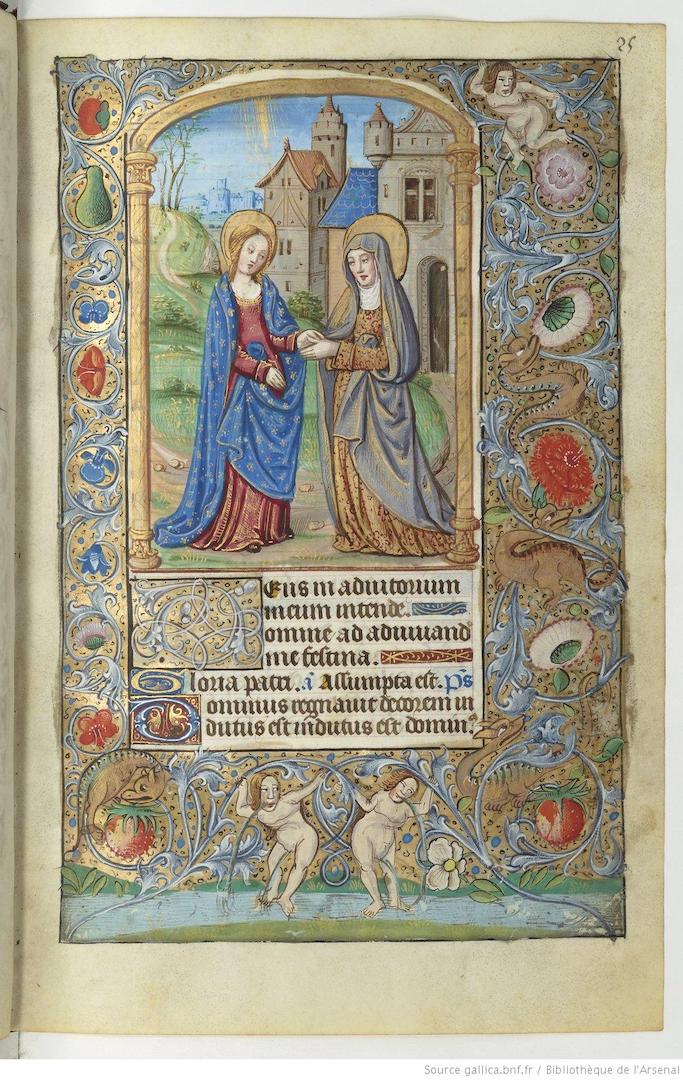 25
DEus in adiutorium
meum intende.
omine ad adiuuand
me festina.
Gloria patri. a͂ Assumpta est. p̄s
Dominus regnauit decorem in
dutus est indutus est domin⁹
Source gallica.bnf.fr / Bibliothèque de l'Arsenal